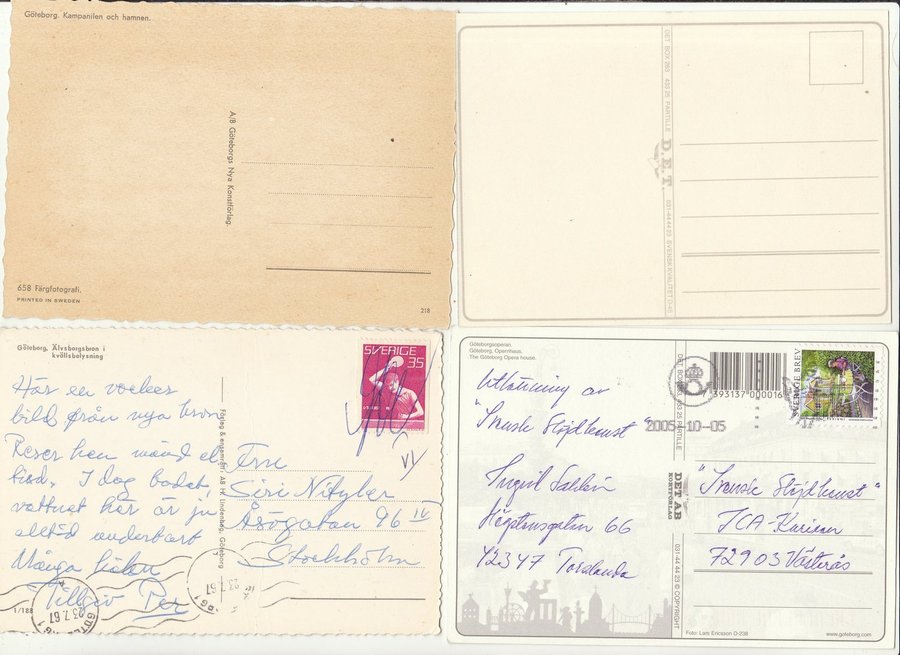 Göteborg. Kampanilen och hamnen.
A/B Göteborgs Nya Konstförlag.
658 Färgfotografi.
PRINTED IN SWEDEN
218
DET BOX 263 433 25 PARTILLE
D.E.T.
031-44 44 23 SVENSK KVALITET D-45
Göteborg, Älvsborgsbron i
kvällsbelysning
SVERIGE 35
Här en vacker
bild från nya bron
Reser hem månd el
tisd. I dag badat,
vattnet här är ju
alltid underbart
Många
Tillgiv Per
1/188
Förlag & ensamrätt: AB H. Lindenhag, Göteborg
VI
Fru
Siri Nityler
Åsögatan 96 IV
Stockholm
23.7.67
23.7.67
Göteborgsoperan.
Göteborg, Opernhaus.
The Göteborg Opera house.
7393137000016
SVERIGE BREV
2005-10-05
Utlottning av
"Svensk Slöjdkonst"
Ingrid
66
42347 Torslanda
DET AB
KONSTFÖRLAG
031-44 44 23 © COPYRIGHT
"Svensk Slöjdkonst"
ICA-Kuriren
72903 Västerås
Foto: Lars Ericsson D-238
www.goteborg.com